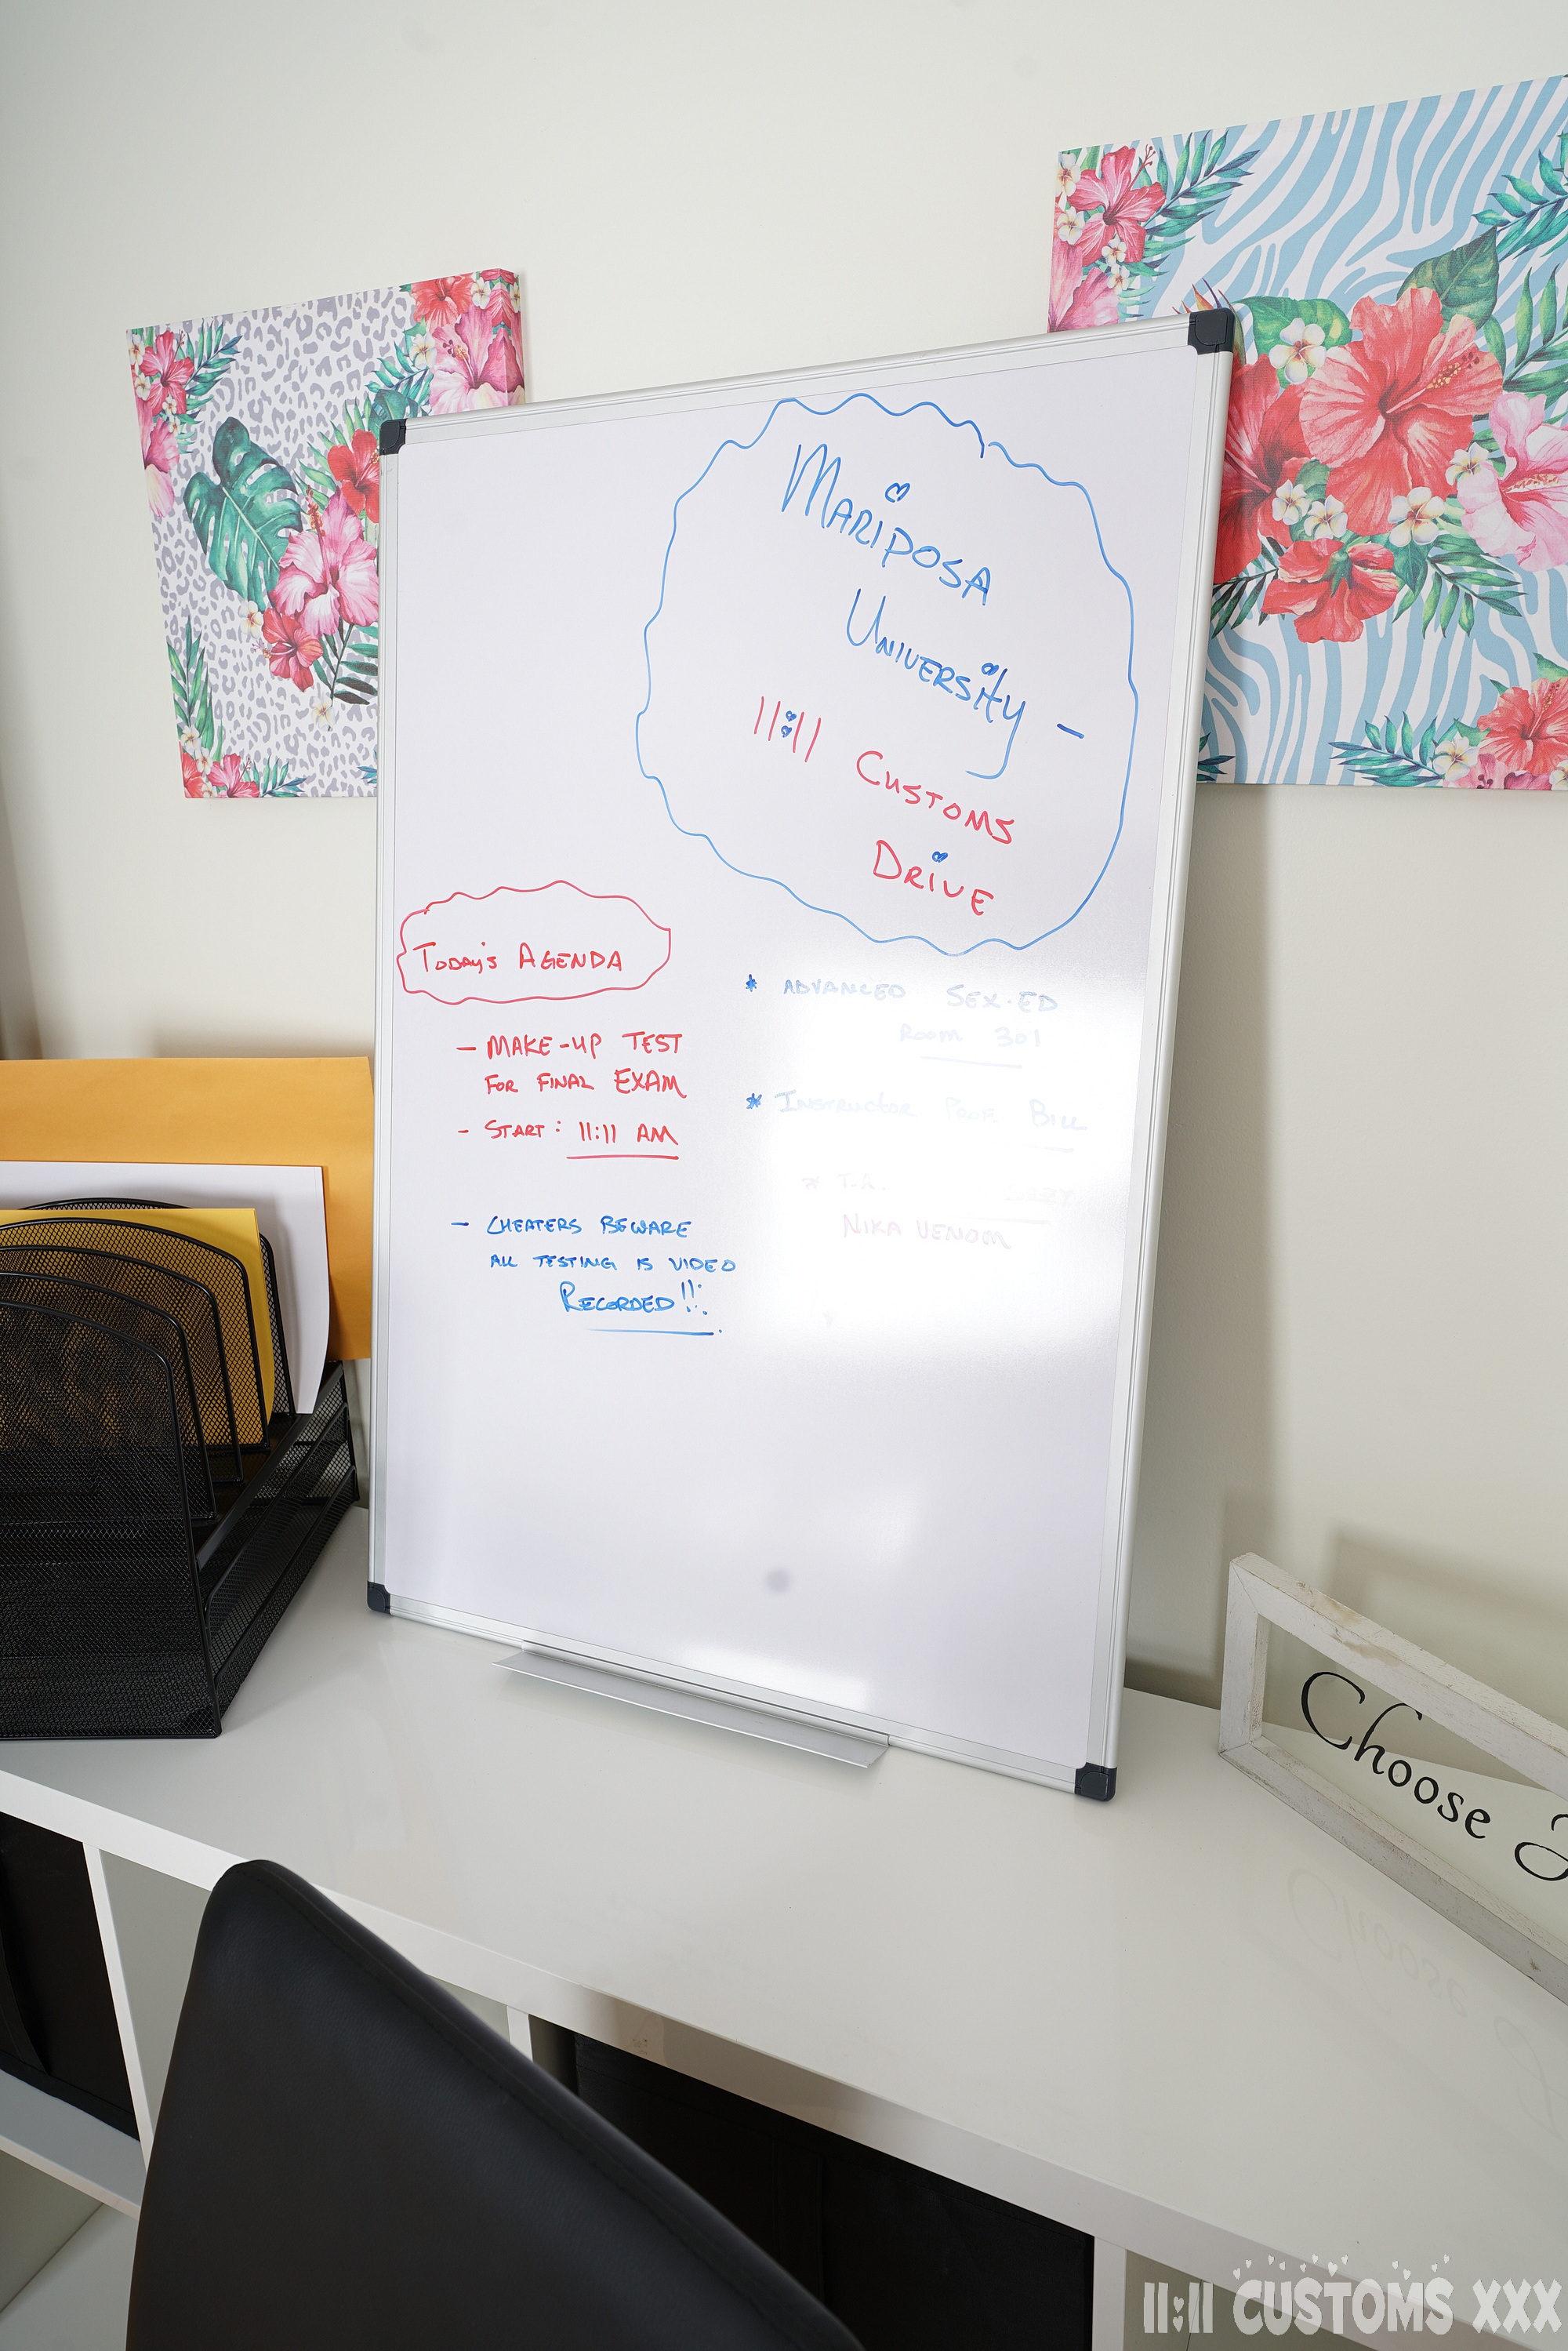 MARIPOSA
UNIVERSITY -
11:11 CUSTOMS
DRIVE
TODAY'S AGENDA
- MAKE-UP TEST
FOR FINAL EXAM
- START: 11:11 AM
- CHEATERS BEWARE
ALL TESTING IS VIDEO
RECORDED!!!
* ADVANCED SEX-ED
ROOM 301
* INSTRUCTOR PROF. BILL
* T.A.
NIKA VENOM
Choose
11:11 CUSTOMS XXX